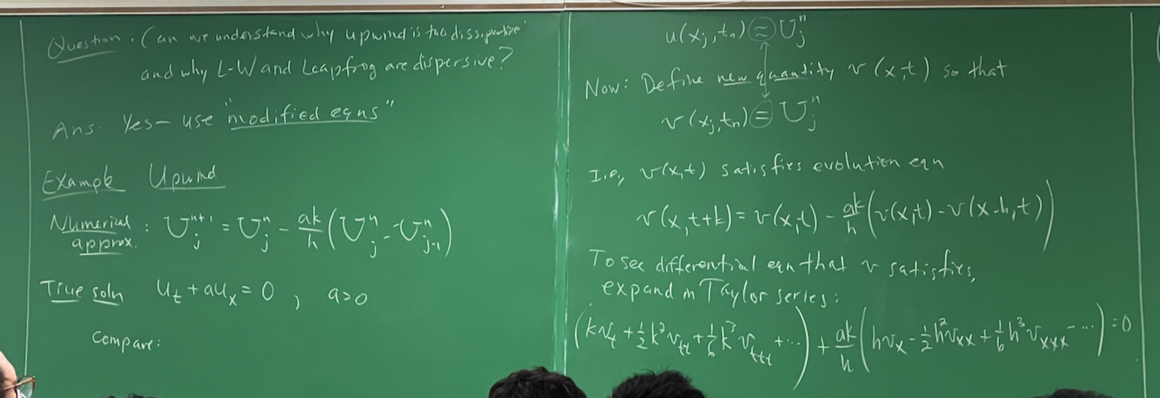 Question. Can we understand why upwind is too dissipative
and why L-W and Leapfrog are dispersive?
Ans. Yes – use "modified eqns"
Example Upwind
Numerical approx. : U_j^{n+1} = U_j^n - \frac{ak}{h} (U_j^n - U_{j-1}^n)
True soln u_t + au_x = 0 , a>0
Compare:
u(x_j, t_n) ≈ U_j^n
Now: Define new quantity v(x,t) so that
v(x_j, t_n) = U_j^n
I.e., v(x,t) satisfies evolution eqn
v(x, t+k) = v(x,t) - \frac{ak}{h} (v(x,t) - v(x-h,t))
To see differential eqn that v satisfies,
expand in Taylor series:
(kv_t + \frac{1}{2}k^2 v_{tt} + \frac{1}{6}k^3 v_{ttt} + ...) + \frac{ak}{h} (hv_x - \frac{1}{2}h^2 v_{xx} + \frac{1}{6}h^3 v_{xxx} - ...) = 0